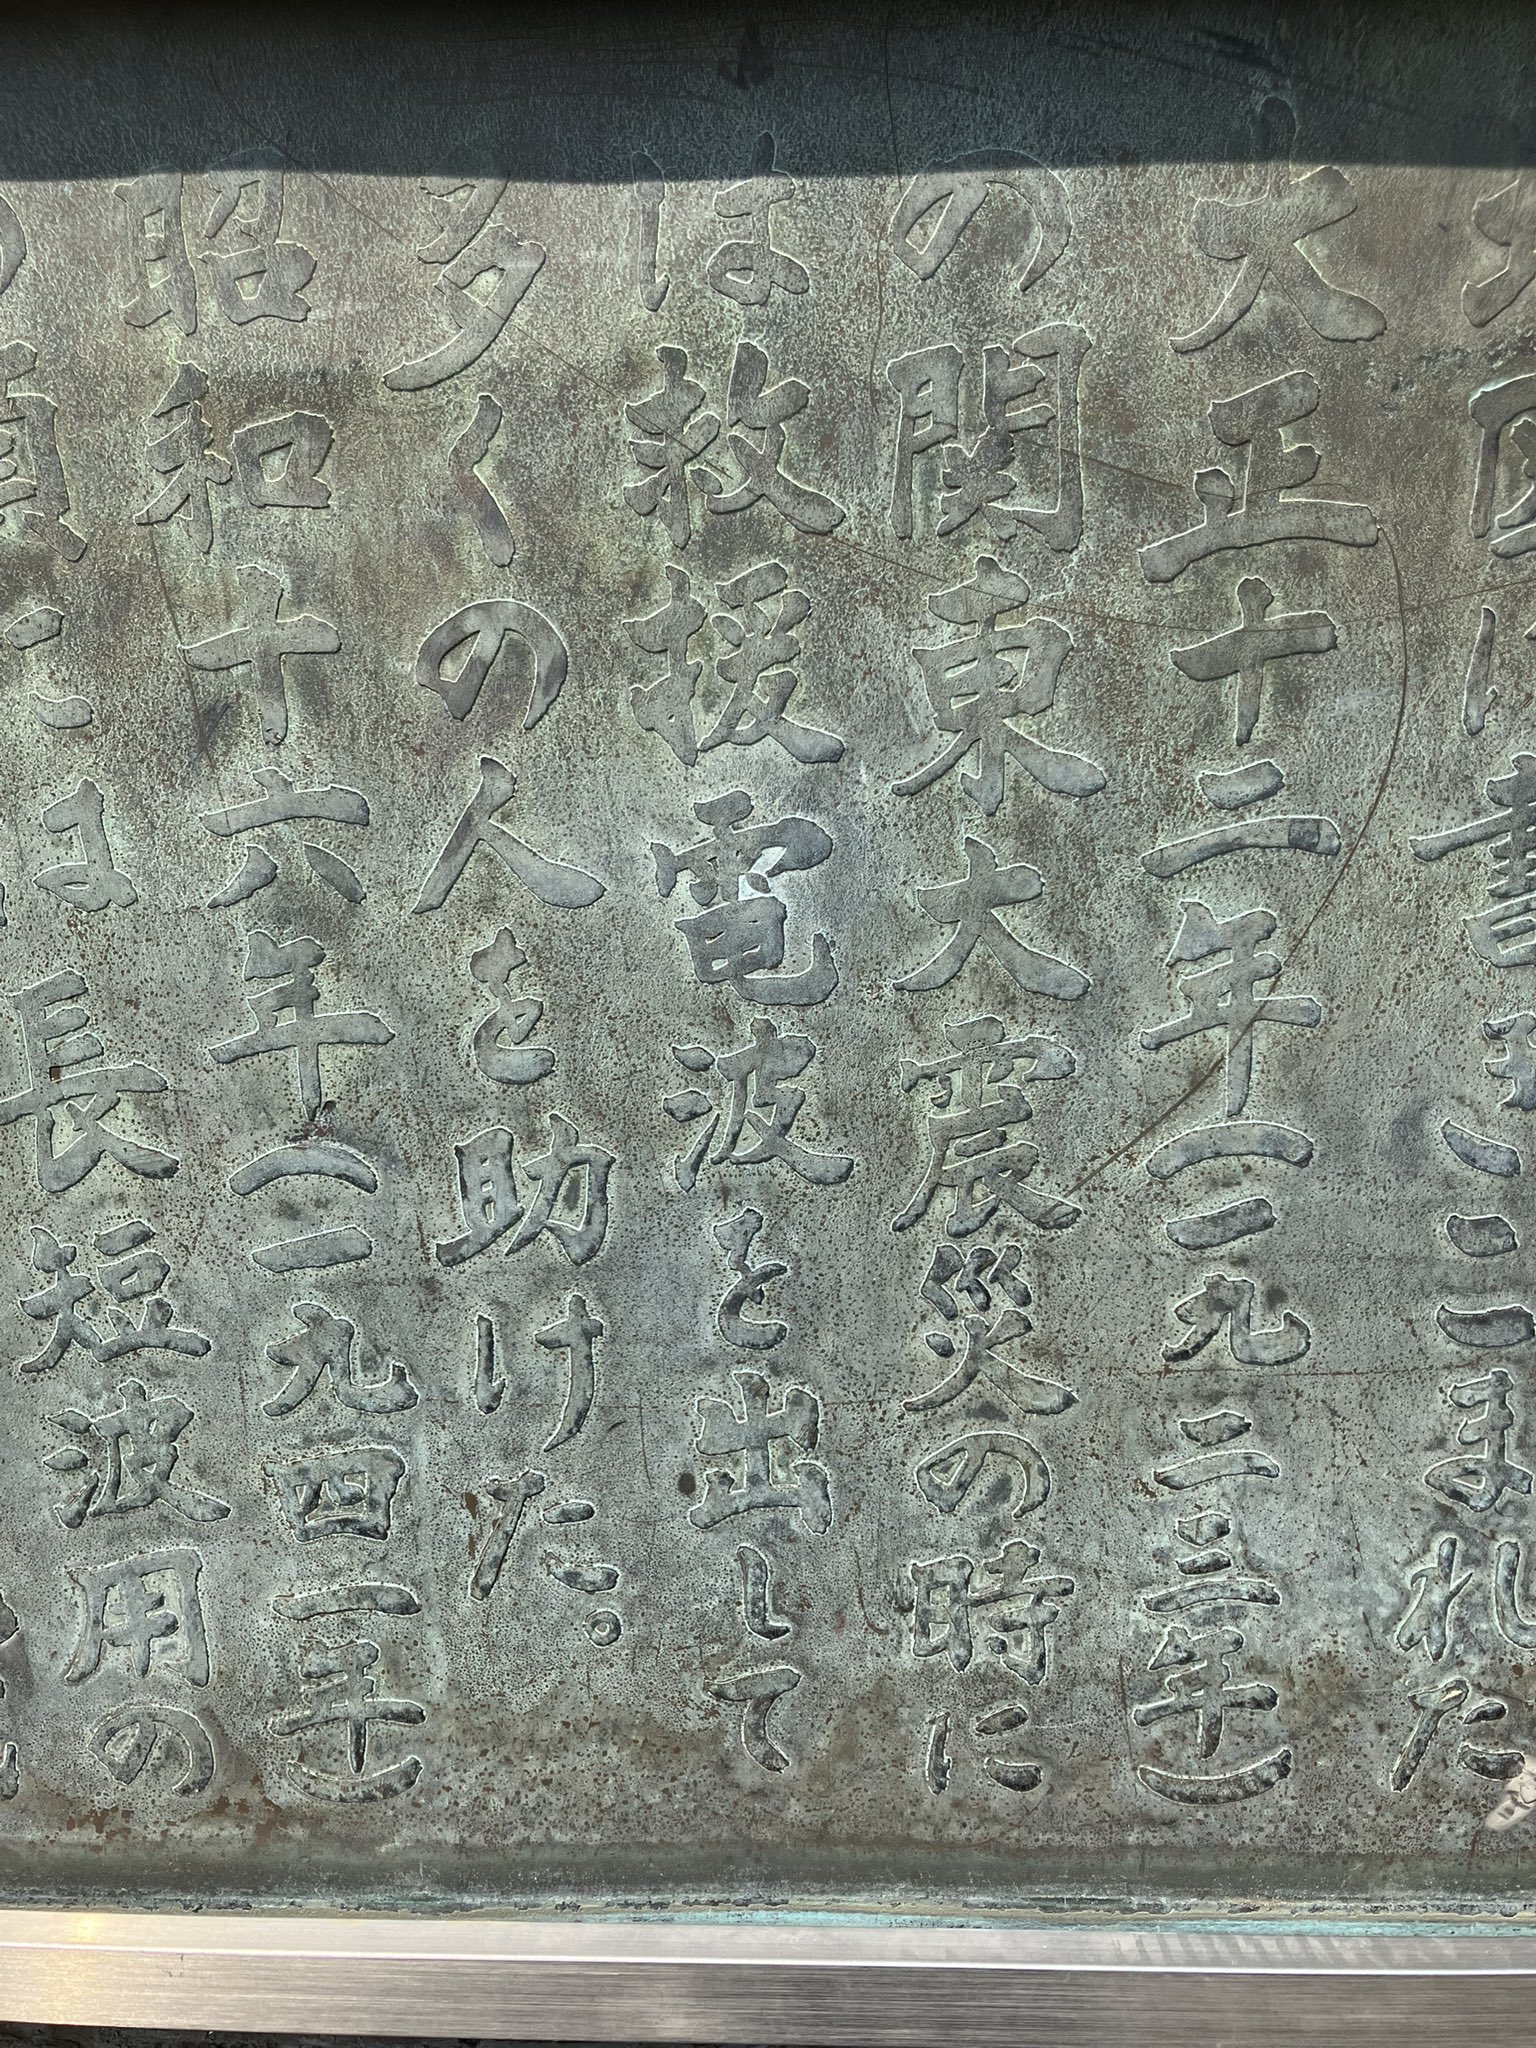 まれた
大正十二年(一九二三年)
の関東大震災の時に
は救援電波を出して
多くの人を助けた。
昭和十六年(一九四一年)
の頃には長短波用の